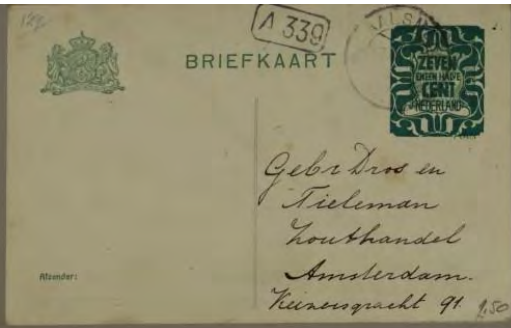 129
A 339
BRIEFKAART
ZEVEN
EN EEN HALVE
CENT
NEDERLAND
Gebr Dros en
Tieleman
Houthandel
Amsterdam.
Keizersgracht 91.
Afzender:
2,50